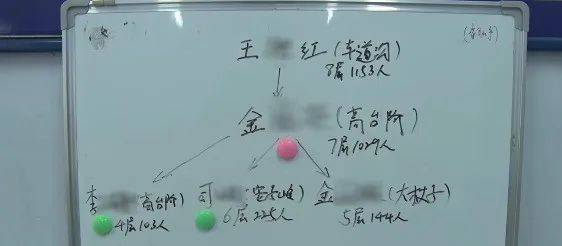 王 红(车道沟)
8层1153人
金 (高台阶)
7层1029人
李 (高台阶)
4层103人
司
6层225人
金 (大杖子)
5层144人